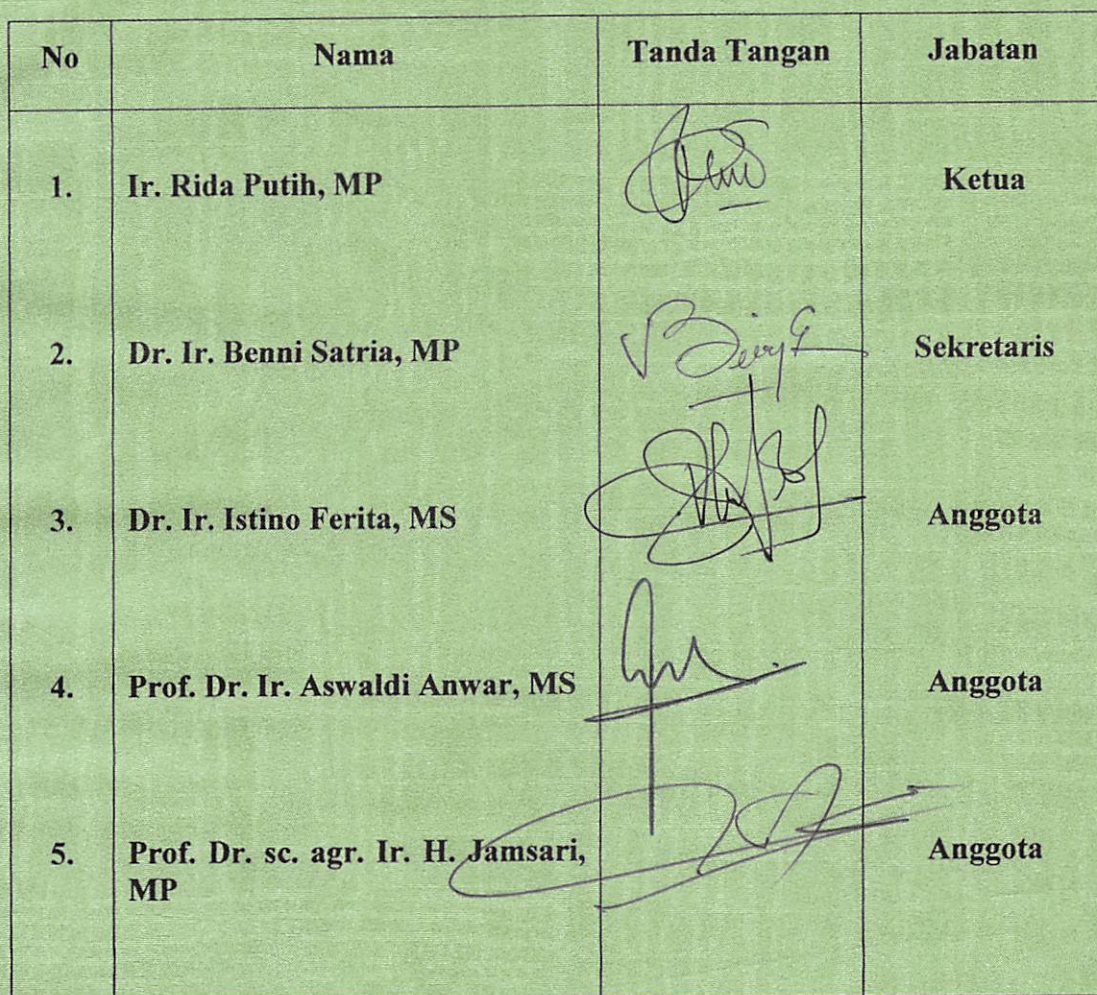 No Nama Tanda Tangan Jabatan
1. Ir. Rida Putih, MP Ketua
2. Dr. Ir. Benni Satria, MP Sekretaris
3. Dr. Ir. Istino Ferita, MS Anggota
4. Prof. Dr. Ir. Aswaldi Anwar, MS Anggota
5. Prof. Dr. sc. agr. Ir. H. Jamsari, Anggota
MP